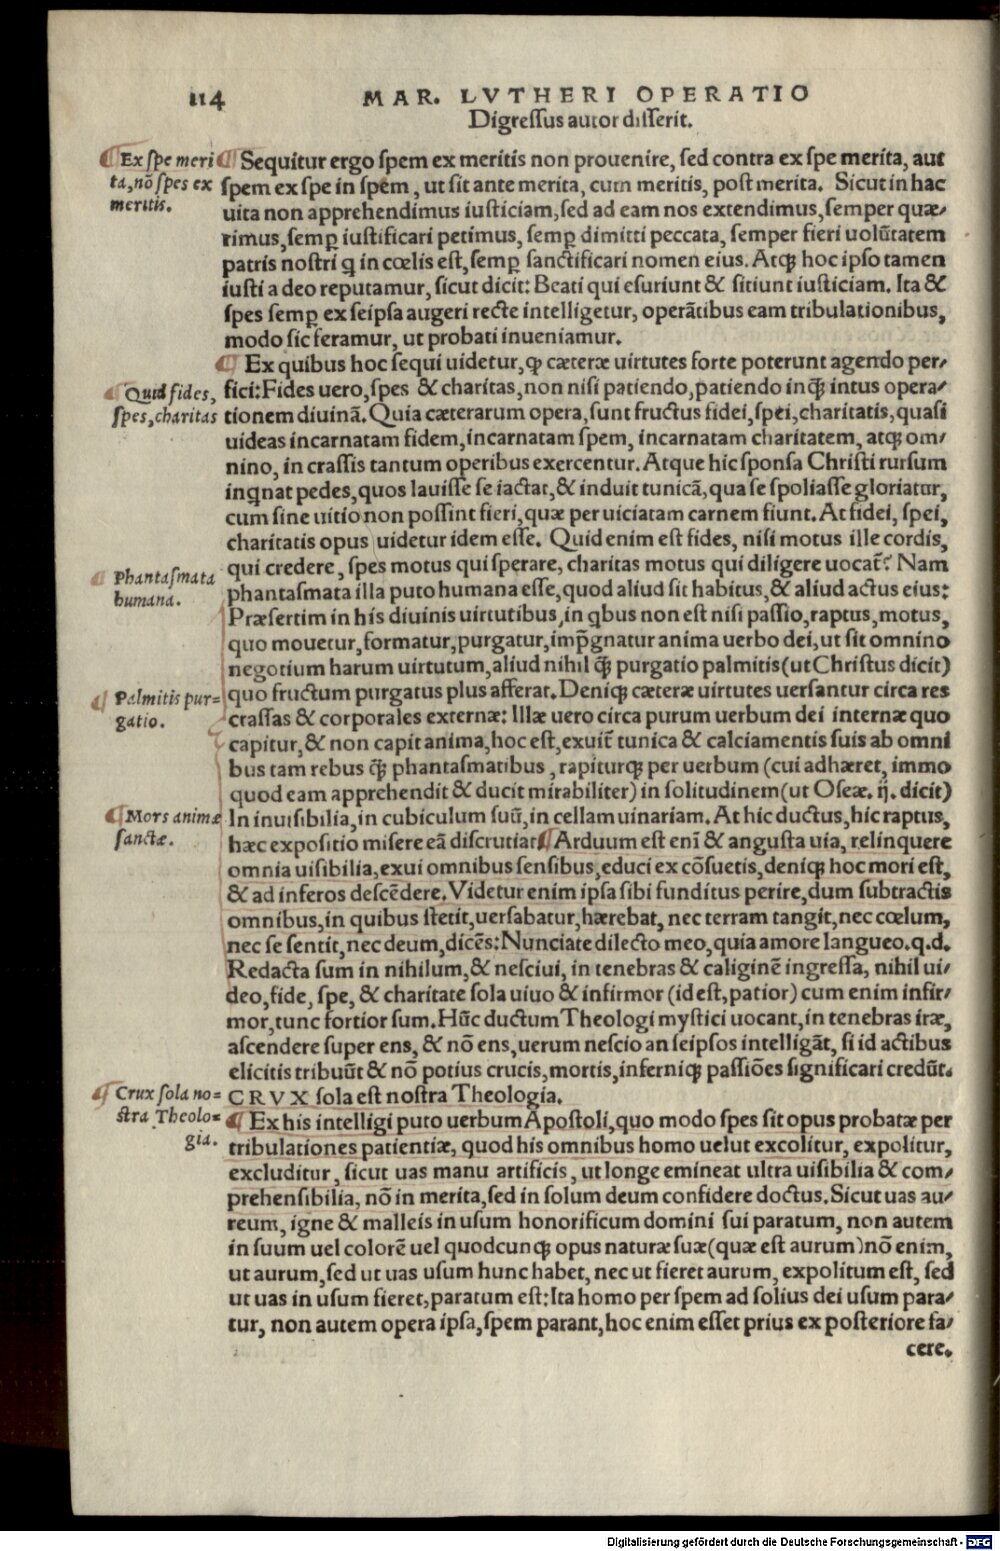 114 MAR. LVTHERI OPERATIO
Digressus autor disserit.
¶ Ex spe meri
ta, nõ spes ex
meritis.
¶ Sequitur ergo spem ex meritis non prouenire, sed contra ex spe merita, aut
spem ex spe in spem, ut sit ante merita, cum meritis, post merita. Sicut in hac
uita non apprehendimus iusticiam, sed ad eam nos extendimus, semper quæ/
rimus, semꝑ iustificari petimus, semꝑ dimitti peccata, semper fieri uolũtatem
patris nostri q̃ in cœlis est, semꝑ sanctificari nomen eius. Atqꝫ hoc ipso tamen
iusti a deo reputamur, sicut dicit: Beati qui esuriunt & sitiunt iusticiam. Ita &
spes semꝑ ex seipsa augeri recte intelligetur, operãtibus eam tribulationibus,
modo sic feramur, ut probati inueniamur.
¶ Ex quibus hoc sequi uidetur, ꝙ cæteræ uirtutes forte poterunt agendo per/
¶ Quid fides,
spes, charitas
fici: Fides uero, spes & charitas, non nisi patiendo, patiendo inq̃ꝫ intus opera/
tionem diuinã. Quia cæterarum opera, sunt fructus fidei, spei, charitatis, quasi
uideas incarnatam fidem, incarnatam spem, incarnatam charitatem, atqꝫ om/
nino, in crassis tantum operibus exercentur. Atque hic sponsa Christi rursum
inq̃nat pedes, quos lauisse se iactat, & induit tunicã, qua se spoliasse gloriatur,
cum sine uitio non possint fieri, quæ per uiciatam carnem fiunt. At fidei, spei,
charitatis opus uidetur idem esse. Quid enim est fides, nisi motus ille cordis,
¶ Phantasmata
humana.
qui credere, spes motus qui sperare, charitas motus qui diligere uocat̃? Nam
phantasmata illa puto humana esse, quod aliud sit habitus, & aliud actus eius:
Præsertim in his diuinis uirtutibus, in q̃bus non est nisi passio, raptus, motus,
quo mouetur, formatur, purgatur, imp̃gnatur anima uerbo dei, ut sit omnino
negotium harum uirtutum, aliud nihil q̃ꝫ purgatio palmitis (ut Christus dicit)
¶ Palmitis pur=
gatio.
quo fructum purgatus plus afferat. Deniqꝫ cæteræ uirtutes uersantur circa res
crassas & corporales externæ: Illæ uero circa purum uerbum dei internæ quo
capitur, & non capit anima, hoc est, exuit̃ tunica & calciamentis suis ab omni
bus tam rebus q̃ꝫ phantasmatibus, rapiturqꝫ per uerbum (cui adhæret, immo
quod eam apprehendit & ducit mirabiliter) in solitudinem (ut Oseæ. ij. dicit)
¶ Mors animæ
sanctæ.
In inuisibilia, in cubiculum suũ, in cellam uinariam. At hic ductus, hic raptus,
hæc expositio misere eã discrutiat. ¶ Arduum est enĩ & angusta uia, relinquere
omnia uisibilia, exui omnibus sensibus, educi ex cõsuetis, deniqꝫ hoc mori est,
& ad inferos descẽdere. Videtur enim ipsa sibi funditus perire, dum subtractis
omnibus, in quibus stetit, uersabatur, hærebat, nec terram tangit, nec cœlum,
nec se sentit, nec deum, dicẽs: Nunciate dilecto meo, quia amore langueo. q.d.
Redacta sum in nihilum, & nesciui, in tenebras & caliginẽ ingressa, nihil ui/
deo, fide, spe, & charitate sola uiuo & infirmor (id est, patior) cum enim infir/
mor, tunc fortior sum. Hũc ductum Theologi mystici uocant, in tenebras iræ,
ascendere super ens, & nõ ens, uerum nescio an seipsos intelligãt, si id actibus
elicitis tribuũt & nõ potius crucis, mortis, inferniqꝫ passiões significari credũt.
¶ Crux sola no=
stra Theolo=
gia.
CRVX sola est nostra Theologia.
¶ Ex his intelligi puto uerbum Apostoli, quo modo spes sit opus probatæ per
tribulationes patientiæ, quod his omnibus homo uelut excolitur, expolitur,
excluditur, sicut uas manu artificis, ut longe emineat ultra uisibilia & com/
prehensibilia, nõ in merita, sed in solum deum confidere doctus. Sicut uas au/
reum, igne & malleis in usum honorificum domini sui paratum, non autem
in suum uel colorẽ uel quodcunqꝫ opus naturæ suæ (quæ est aurum) nõ enim,
ut aurum, sed ut uas usum hunc habet, nec ut fieret aurum, expolitum est, sed
ut uas in usum fieret, paratum est: Ita homo per spem ad solius dei usum para/
tur, non autem opera ipsa, spem parant, hoc enim esset prius ex posteriore fa/
cere.
Digitalisierung gefördert durch die Deutsche Forschungsgemeinschaft - DFG